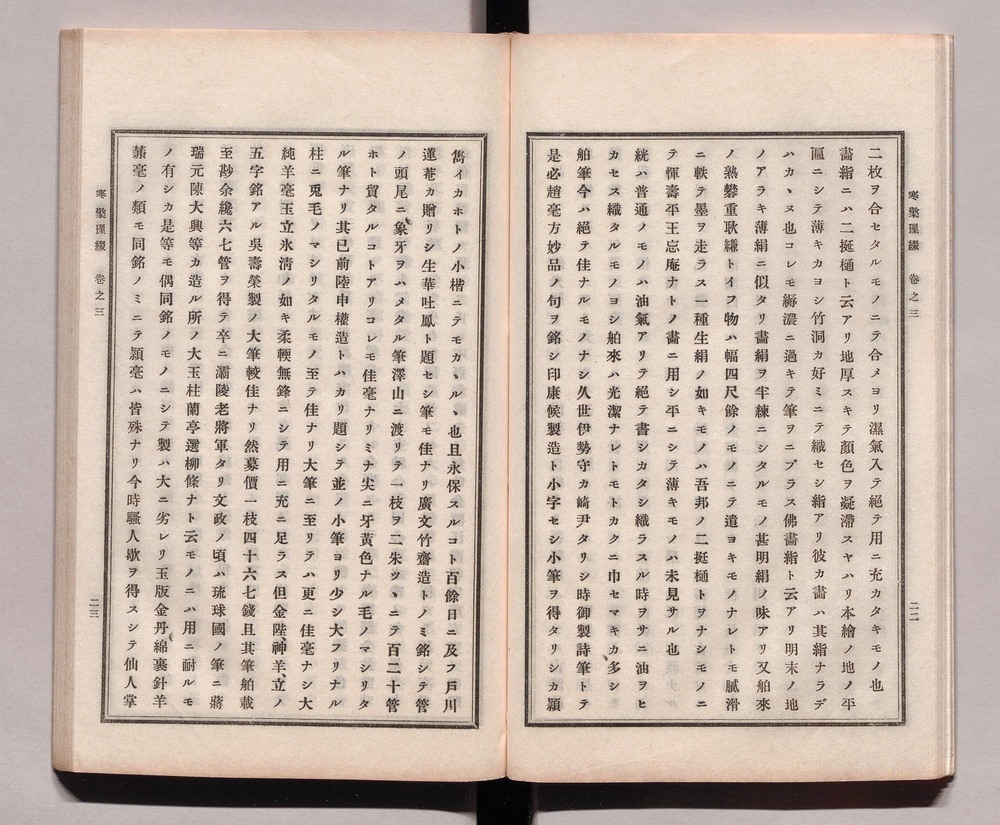 寒檠璅綴　卷之三
二枚ヲ合セタルモノニテ合メヨリ濕氣入テ絕テ用ニ充カタキモノ也
畵絹ニハ二挺樋ト云アリ地厚スキテ顏色ヲ凝滯スヤハリ本繪ノ地ノ平
匾ニシテ薄キカヨシ竹洞カ好ミニテ織セシ絹アリ彼カ畵ハ其絹ナラデ
ハカヽヌ也コレモ縟濃ニ過キテ筆ヲニブラス佛畵絹ト云アリ明末ノ地
ノアラキ薄絹ニ似タリ畵絹ヲ半練ニシタルモノ甚明絹ノ味アリ又舶來
ノ熟礬重耿縑トイフ物ハ幅四尺餘ノモノニテ遣ヨキモノナレトモ膩滑
ニ軼テ墨ヲ走ラス一種生絹ノ如キモノハ吾邦ノ二挺樋トヲナシモノニ
テ惲壽平王忘庵ナトノ畵ニ用シ平ニシテ薄キモノハ未見サル也
絖ハ普通ノモノハ油氣アリテ絕テ書シカタシ織ラスル時ヲサニ油ヲヒ
カセス織タルモノヨシ舶來ハ光潔ナレトモトカクニ巾セマキカ多シ
舶筆今ハ絕テ佳ナルモノナシ久世伊勢守カ崎尹タリシ時御製詩筆トテ
是必趙毫方妙品ノ句ヲ銘シ印康候製造ト小字セシ小筆ヲ得タリシカ穎
二二
雋イカホトノ小楷ニテモカヽル、也且永保スルコト百餘日ニ及フ戶川
蓮菴カ贈リシ生華吐鳳ト題セシ筆モ佳ナリ廣文竹齋造トノミ銘シテ管
ノ頭尾ニ象牙ヲハメタル筆澤山ニ渡リテ一枝ヲ二朱ツヽニテ百二十管
ホト貿タルコトアリコレモ佳毫ナリミナ尖ニ牙黃色ナル毛ノマシリタ
ル筆ナリ其已前陸申權造トハカリ題シテ並ノ小筆ヨリ少シ大フリナル
柱ニ兎毛ノマシリタルモノ至テ佳ナリ大筆ニ至リテハ更ニ佳毫ナシ大
純羊毫玉立氷淸ノ如キ柔輭無鋒ニシテ用ニ充ニ足ラス但金陛神羊立ノ
五字銘アル吳壽榮製ノ大筆較佳ナリ然募價一枝四十六七錢且其筆舶載
至尠余纔六七管ヲ得テ卒ニ灞陵老將軍タリ文政ノ頃ハ琉球國ノ筆ニ蔣
瑞元陳大興等カ造ル所ノ大玉柱蘭亭選柳條ナト云モノニハ用ニ耐ルモ
ノ有シカ是等モ偶同銘ノモノニシテ製ハ大ニ劣レリ玉版金丹綿裹針羊
毫ノ類モ同銘ノミニテ穎毫ハ皆殊ナリ今時騷人歇ヲ得スシテ仙人掌
寒檠璅綴　卷之三
二三